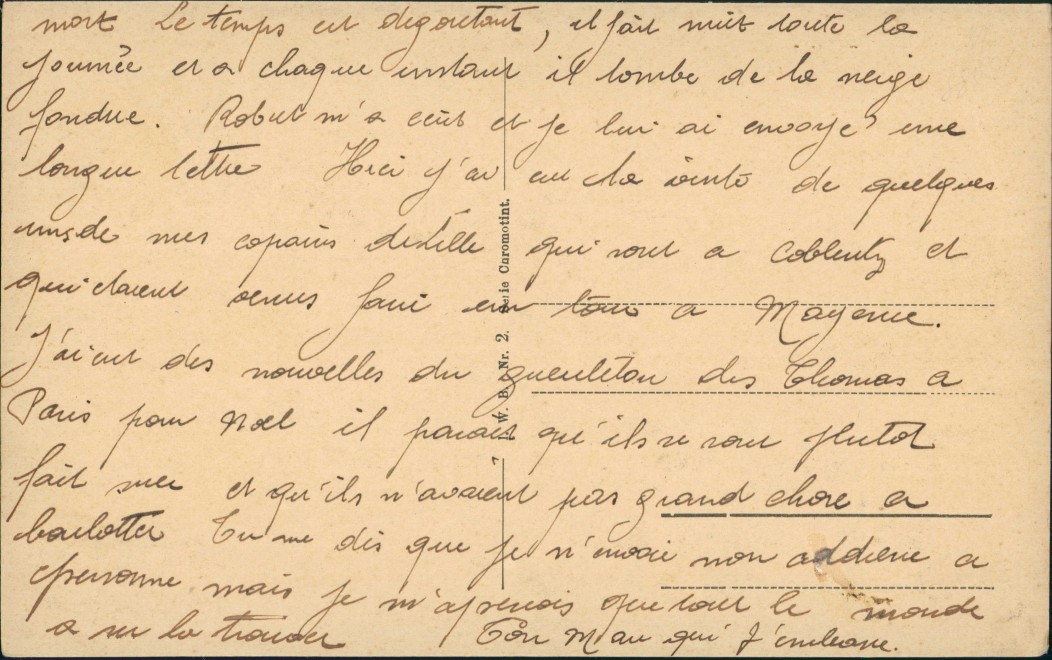 mort Le temps est degoutant, il fait nuit toute la
journée et a chaque instant il tombe de la neige
fondue. Robert m'a ecrit et je lui ai envoyé une
longue lettre Hier j'ai eu la visite de quelques
uns de mes copains de Lille qui sont a Coblentz et
qui etaient venus faire un tour a Mayence.
J'ai eut des nouvelles du gueuleton des Thomas a
Paris pour Noel il parait qu'ils se sont plutot
fait suer et qu'ils n'avaient pas grand chose a
boulotter Tu me dis que je n'envoie mon addresse a
personne mais je m'aperçois que tout le monde
a su la trouver Ton Mau qui t'embrasse.
W. B. Nr. 2. Serie Caromotint.